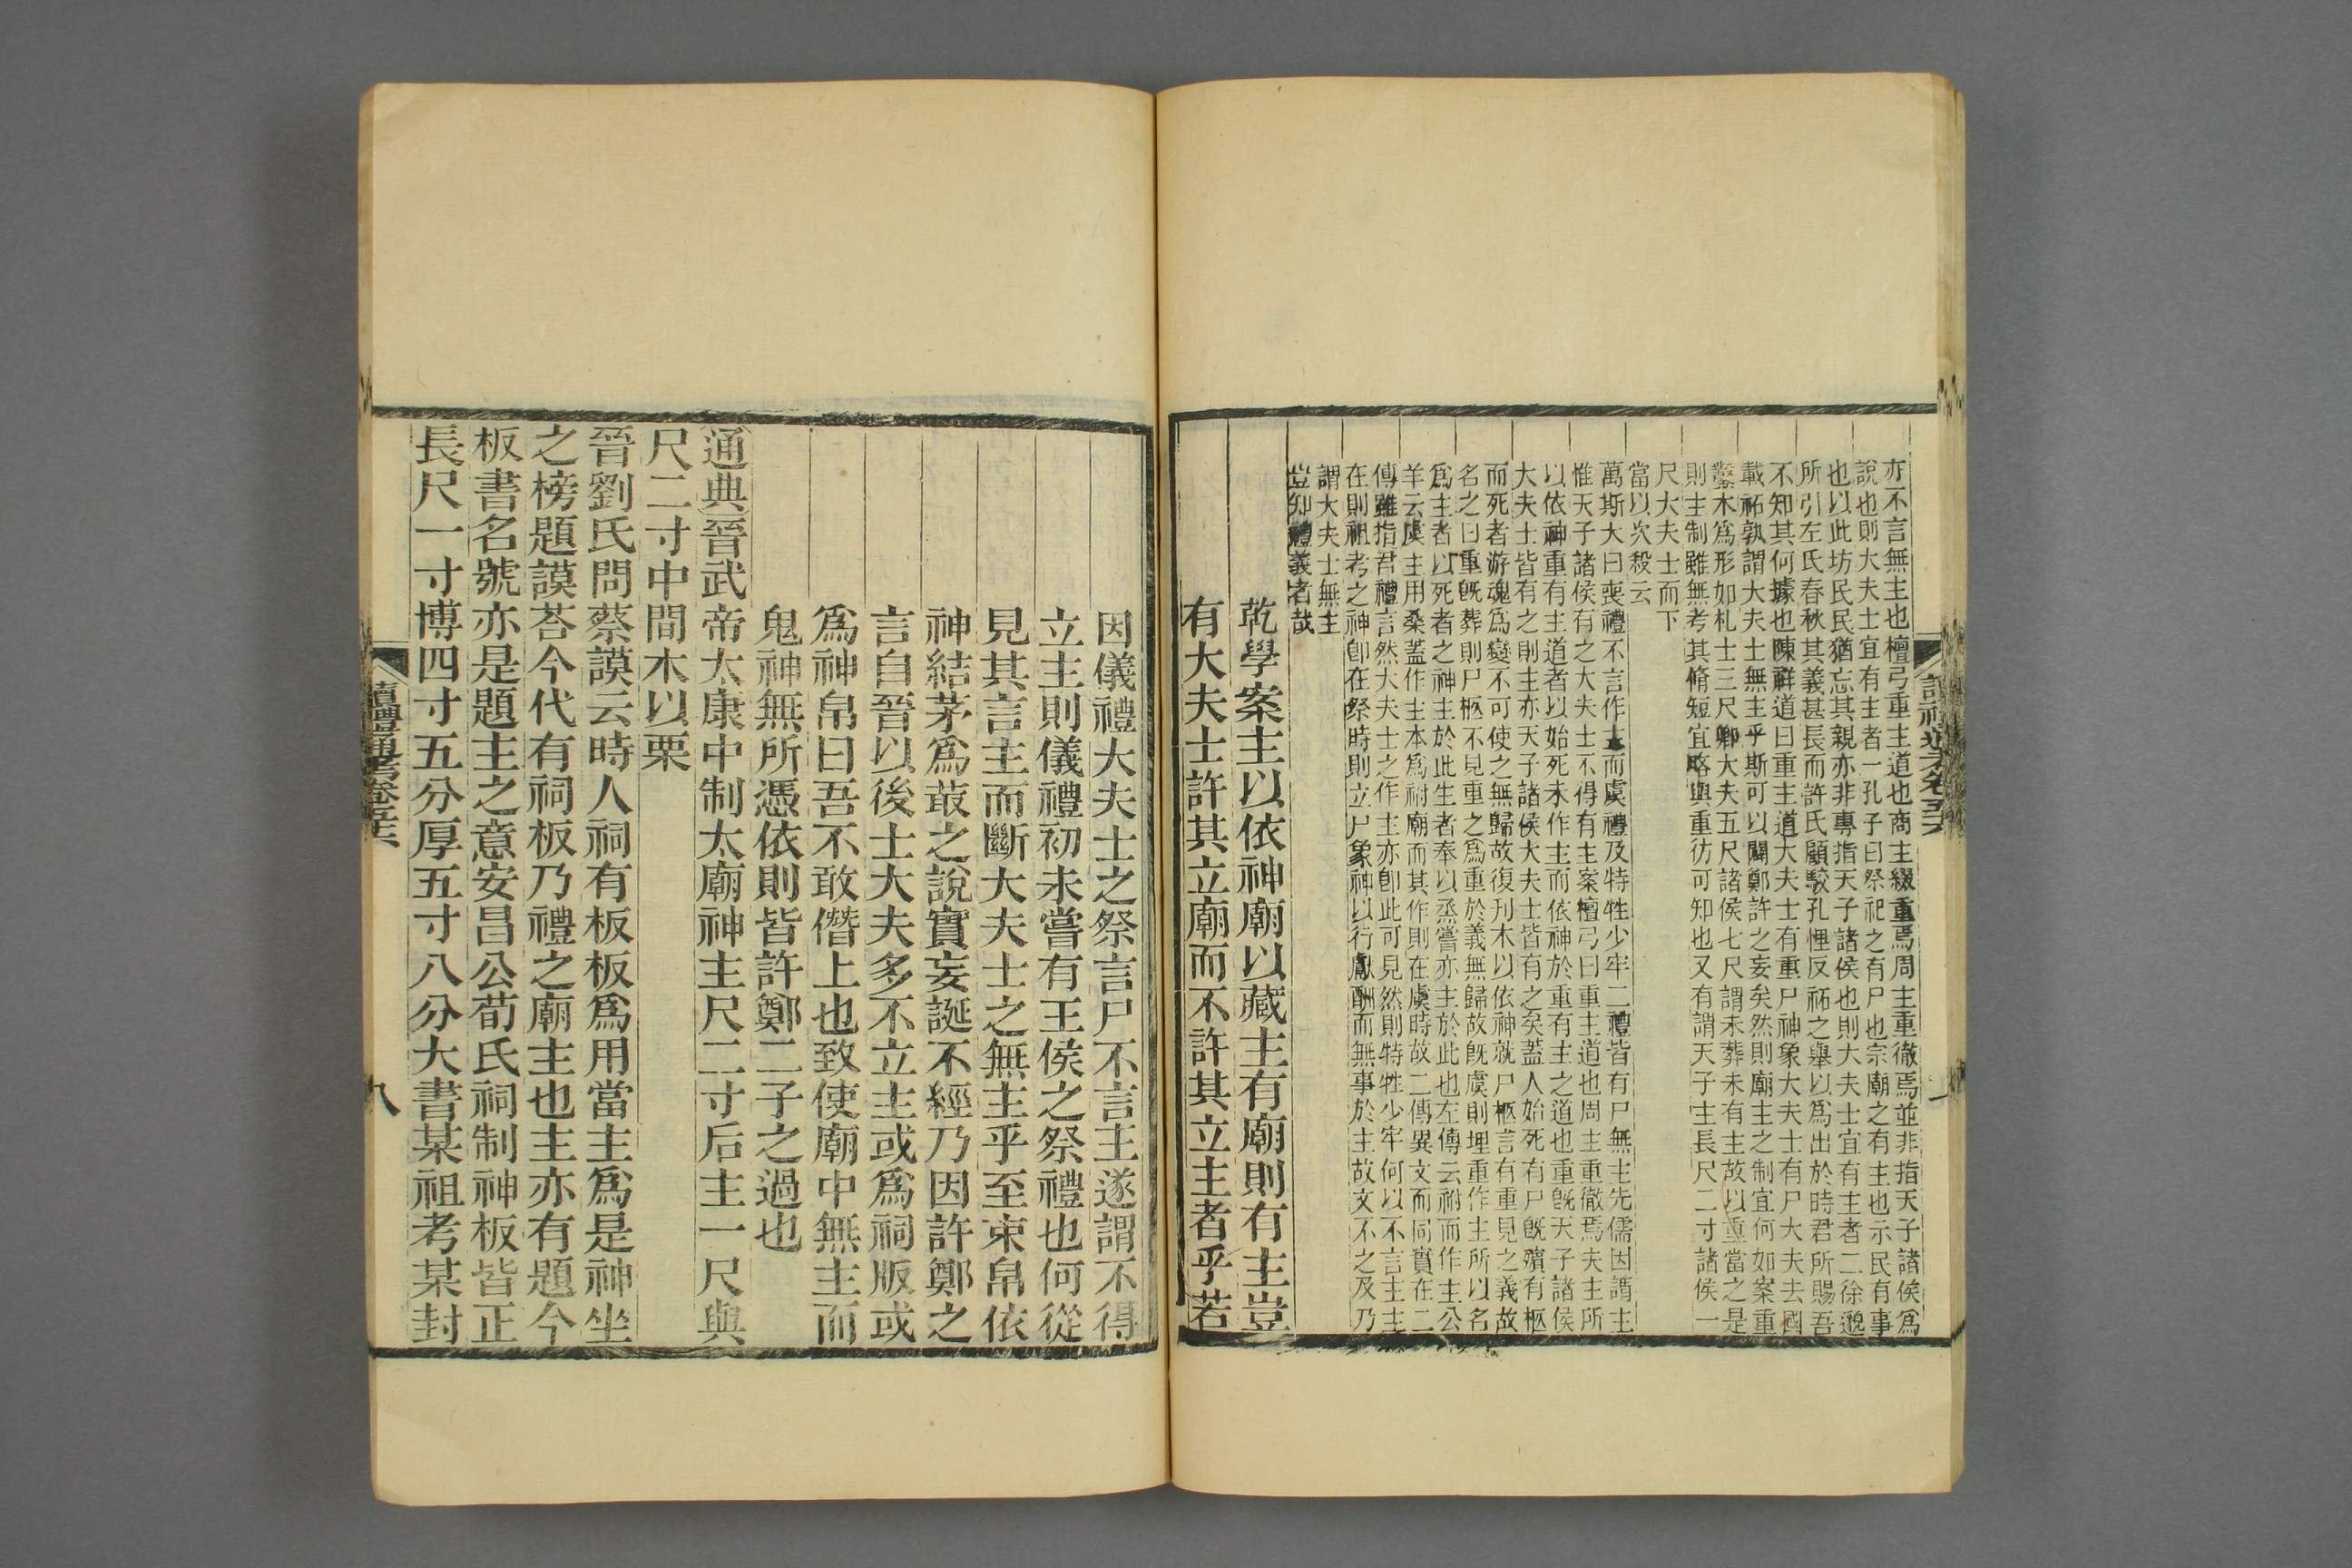 亦不言無主也檀弓重主道也商主綴重焉周主重徹焉並非指天子諸侯爲
說也則大夫士宜有主者一孔子曰祭祀之有尸也宗廟之有主也示民有事
也以此坊民民猶忘其親亦非專指天子諸侯也則大夫士宜有主者二徐邈
所引左氏春秋其義甚長而許氏顧駮孔悝反祏之舉以爲出於時君所賜吾
不知其何據也陳祥道曰重主道大夫士有重尸神象大夫士有尸大夫去國
載祏孰謂大夫士無主乎斯可以闢鄭許之妄矣然則廟主之制宜何如案重
鑿木爲形如札士三尺卿大夫五尺諸侯七尺謂未葬未有主故以重當之是
則主制雖無考其脩短宜略與重彷可知也又有謂天子主長尺二寸諸侯一
尺大夫士而下
當以次殺云
萬斯大曰喪禮不言作主而虞禮及特牲少牢二禮皆有尸無主先儒因謂主
惟天子諸侯有之大夫士不得有主案檀弓曰重主道也周主重徹焉夫主所
以依神重有主道者以始死未作主而依神於重有主之道也重旣天子諸侯
大夫士皆有之則主亦天子諸侯大夫士皆有之矣蓋人始死有尸旣殯有柩
而死者游魂爲變不可使之無歸故復刋木以依神就尸柩言有重見之義故
名之曰重旣葬則尸柩不見重之爲重於義無歸故旣虞則埋重作主所以名
爲主者以死者之神主於此生者奉以烝嘗亦主於此也左傳云祔而作主公
羊云虞主用桑蓋作主本爲祔廟而其作則在虞時故二傳異文而同實在二
傳雖指君禮言然大夫士之作主亦卽此可見然則特牲少牢何以不言主主
在則祖考之神卽在祭時則立尸象神以行獻酬而無事於主故文不之及乃
謂大夫士無主
豈知禮義者哉
乾學案主以依神廟以藏主有廟則有主豈
有大夫士許其立廟而不許其立主者乎若
因儀禮大夫士之祭言尸不言主遂謂不得
立主則儀禮初未嘗有王侯之祭禮也何從
見其言主而斷大夫士之無主乎至束帛依
神結茅爲菆之說實妄誕不經乃因許鄭之
言自晉以後士大夫多不立主或爲祠版或
爲神帛曰吾不敢僭上也致使廟中無主而
鬼神無所憑依則皆許鄭二子之過也
通典晉武帝太康中制太廟神主尺二寸后主一尺與
尺二寸中間木以栗
晉劉氏問蔡謨云時人祠有板板爲用當主爲是神坐
之榜題謨荅今代有祠板乃禮之廟主也主亦有題今
板書名號亦是題主之意安昌公荀氏祠制神板皆正
長尺一寸博四寸五分厚五寸八分大書某祖考某封
讀禮通考卷五十六
八